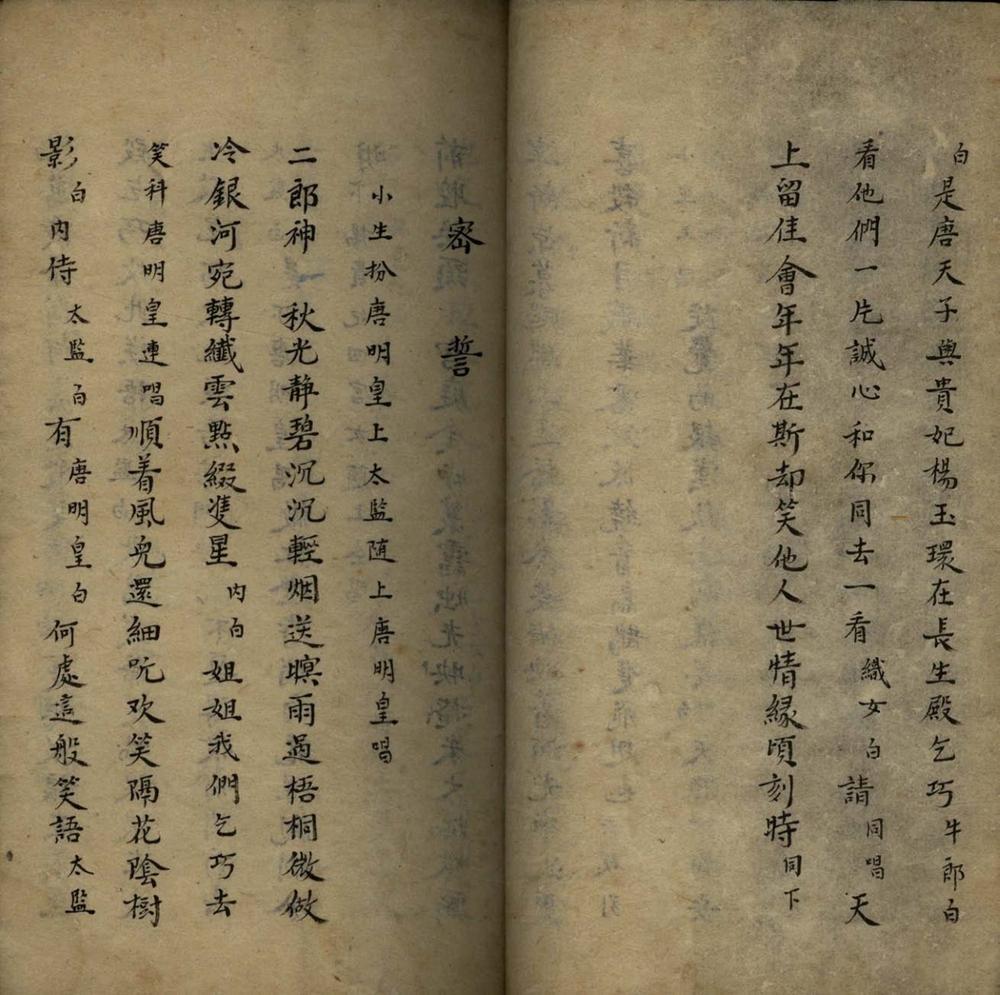 白是唐天子與貴妃楊玉環在長生殿乞巧牛郎白
看他們一片誠心和你同去一看織女白請同唱天
上留佳會年年在斯却笑他人世情緣頃刻時同下
密誓
小生扮唐明皇上太監随上唐明皇唱
二郎神一秋光静碧沉沉輕烟送暝雨過梧桐微做
冷銀河宛轉纖雲點綴隻星内白姐姐我們乞巧去
笑科唐明皇連唱順着風兒還細吮欢笑隔花陰樹
影白内侍太監白有唐明皇白何處這般笑語太監